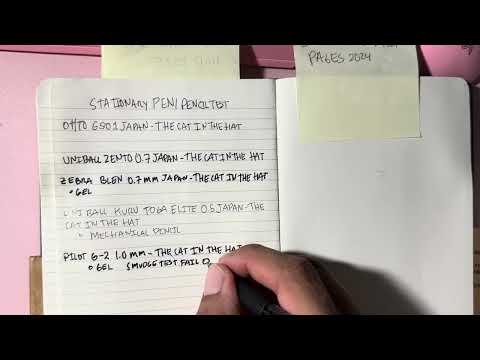 PAGES 2024
STATIONARY PEN/PENCIL TEST
OHTO GS01 JAPAN - THE CAT IN THE HAT
UNIBALL ZENTO 0.7 JAPAN - THE CAT IN THE HAT
ZEBRA BLEN 0.7 mm JAPAN - THE CAT IN THE HAT
• GEL
UNIBALL KURU TOGA ELITE 0.5 JAPAN - THE
CAT IN THE HAT
• MECHANICAL PENCIL
PILOT G-2 1.0 mm - THE CAT IN THE HAT
• GEL SMUDGE TEST FAIL